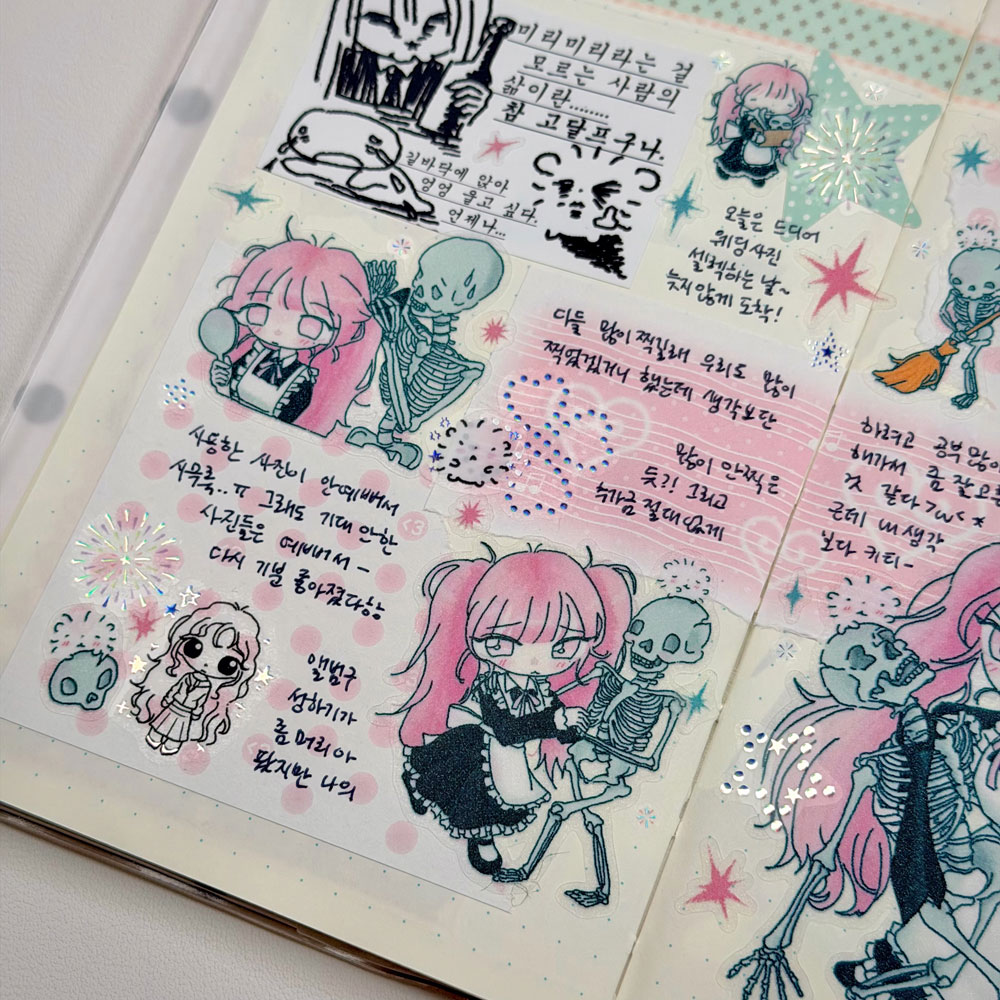 미리미리라는 걸
모르는 사람의
삶이란.......
참 고달프구나.
길바닥에 앉아
엉엉 울고 싶다.
언제나...
오늘은 드디어
웨딩사진
셀렉하는 날~
늦지않게 도착!
다들 많이 찍길래 우리도 많이
찍었겠거니 했는데 생각보단
많이 안찍은
듯?! 그리고
수가금 절대 없게
하려고 공부많이
해가서 좀 잘고른
것 같다 >w< *
근데 내 생각
보다 키티-
사용한 사진이 안예뻐서
시무룩..ㅠ 그래도 기대 안한
사진들은 예뻐서 -
다시 기분 좋아졌다항
<3
앨범구
성하기가
좀 머리아
팠지만 나의